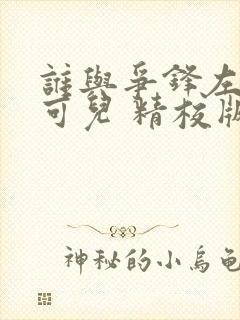 誰與爭鋒左
可兒 精校版
神秘的小烏龜